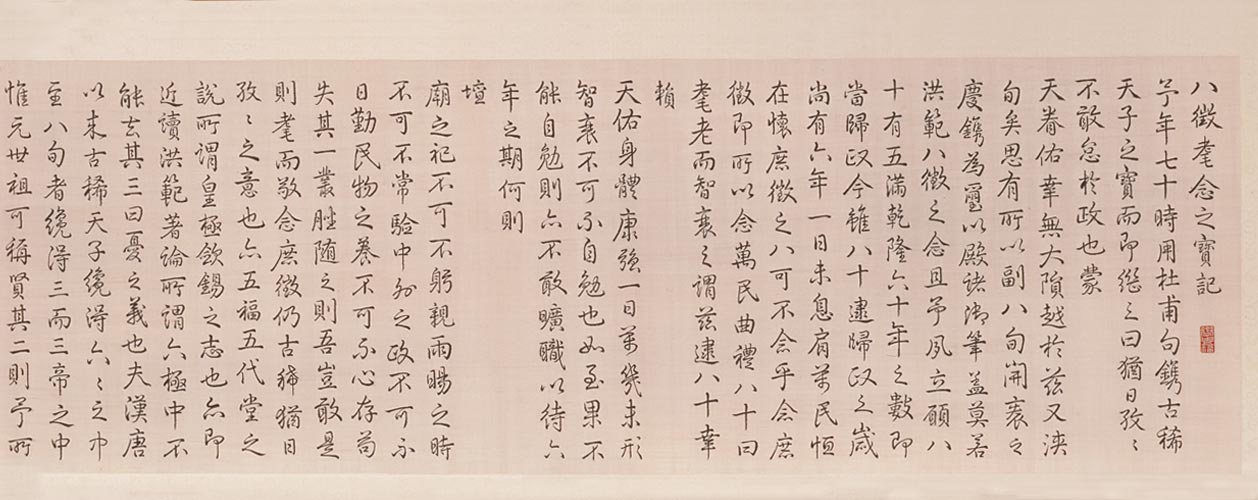 八徵耄念之寶記
予年七十時用杜甫句鐫古稀
天子之寶而即繼之曰猶日孜〻
不敢怠於政也蒙
天眷佑幸無大隕越於茲又浹
旬矣思有所以副八旬開袠之
慶鐫為璽以殿諸御筆蓋莫若
洪範八徵之念且予夙立願八
十有五滿乾隆六十年之數即
當歸政今雖八十逮歸政之歲
尚有六年一日未息肩萬民恒
在懷庶徵之八可不念乎念庶
徵即所以念萬民曲禮八十曰
耄老而智衰之謂茲逮八十幸
賴
天佑身體康強一日萬幾未形
智衰不可不自勉也如至果不
能自勉則亦不敢曠職以待六
年之期何則
壇
廟之祀不可不躬親雨暘之時
不可不常驗中外之政不可不
日勤民物之養不可不心存苟
失其一叢脞随之則吾豈敢是
則耄而敬念庶徵仍古稀猶日
孜〻之意也亦五福五代堂之
說所謂皇極斂錫之志也亦即
近讀洪範著論所謂六極中不
能去其三曰憂之義也夫漢唐
以来古稀天子纔得六〻之中
至八旬者纔得三而三帝之中
惟元世祖可稱賢其二則予所